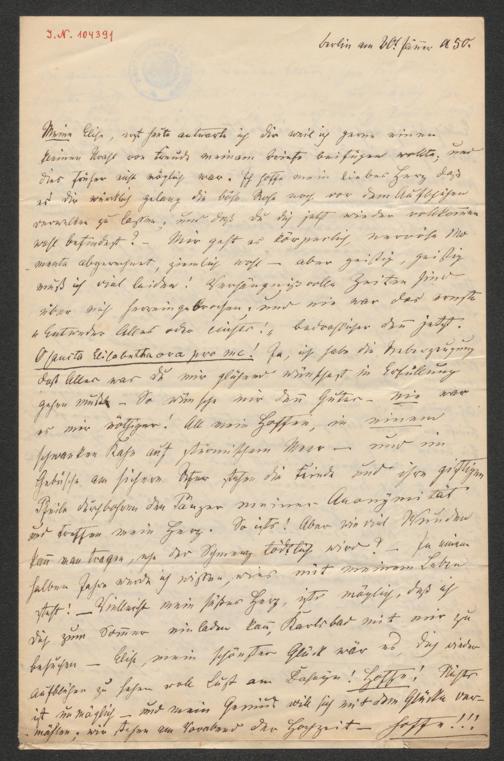 J.N. 104391
Berlin am 20t Jänner 850.
Meine Elise, erst heute antworte ich dir weil ich gerne einen
kleinen Strahl von Freude meinem Briefe beifügen wollte, und
dies früher nicht möglich war. Ich hoffe mein liebes Herz daß
es dir wirklich gelang die böse Rose noch vor dem Aufblühen
verwelken zu lassen, und daß du dich jetzt wieder vollkommen
wohl befindest? – Mir geht es körperlich nervöse Mo
mente abgerechnet, ziemlich wohl – aber geistig, geistig
muß ich viel leiden! Verhängnißvolle Zeiten sind
über mich hereingebrochen, und nie war das ernste
Entweder Alles oder nichts! bedeutender denn jetzt.
O sancta Elisabetha ora pro me! Ja, ich habe die Ueberzeugung
daß Alles was du mir glühend wünschest in Erfüllung
gehen muß – So wünsche mir denn Gutes – nie war
es mir nöthiger! All mein Hoffen, in einem
schwanken Kahn auf stürmischem Meer – und im
Gebüsche am sichern Ufer stehen die Feinde und ihre giftigen
Pfeile durchbohren den Panzer meiner Anonymität
und treffen mein Herz. So ist's! Aber wie viel Wunden
kann man tragen, ehe der Schmerz tödtlich wird? – In einem
halben Jahre werde ich wissen, wie's mit meinem Leben
steht! – Vielleicht mein süßes Herz, ist's möglich, daß ich
dich zum Sommer einladen kann, Karlsbad mit mir zu
besuchen – Elise, mein schönstes Glück wär es, dich wieder
aufblühen zu sehen voll Lust am Dasein! Hoffe! Nichts
ist unmöglich – und mein Genius will sich mit dem Glücke ver-
mählen, wir stehen am Vorabend der Hochzeit – hoffe!!!